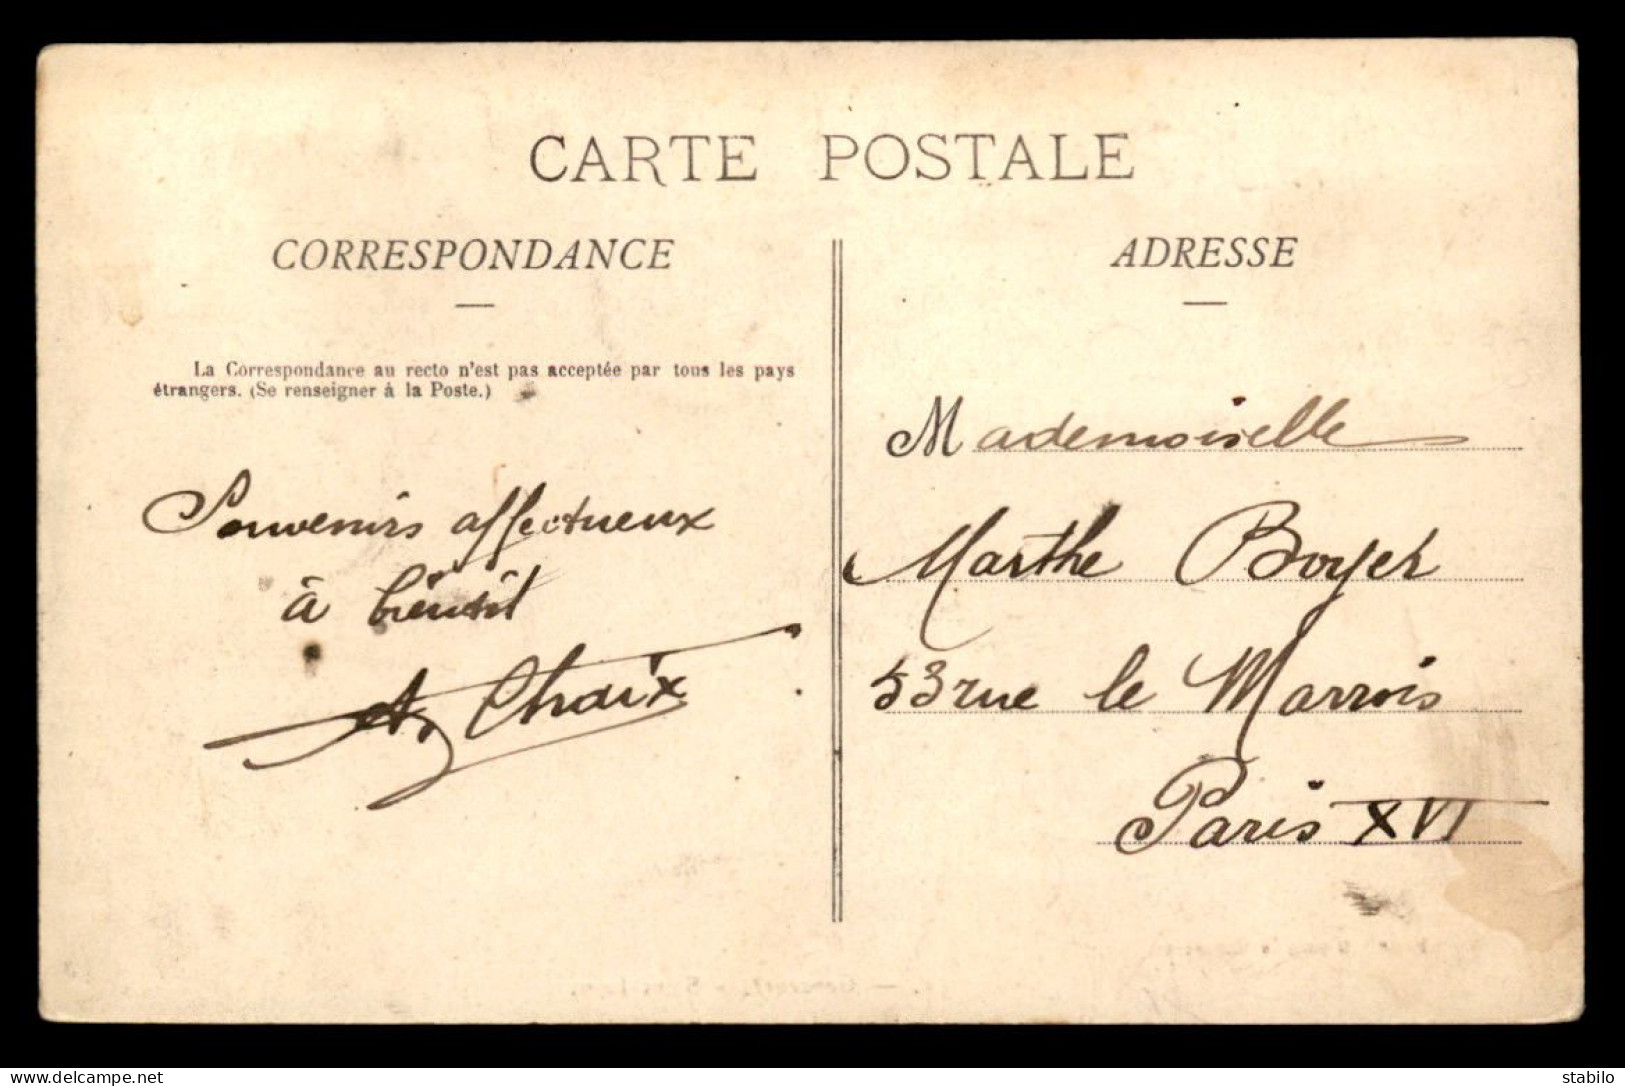 CARTE POSTALE
CORRESPONDANCE
La Correspondance au recto n'est pas acceptée par tous les pays
étrangers. (Se renseigner à la Poste.)
Souvenirs affectueux
à bientôt
Chaix
ADRESSE
Mademoiselle
Marthe Boyer
53 rue le Marrois
Paris XVI
delcampe.net
stabilo